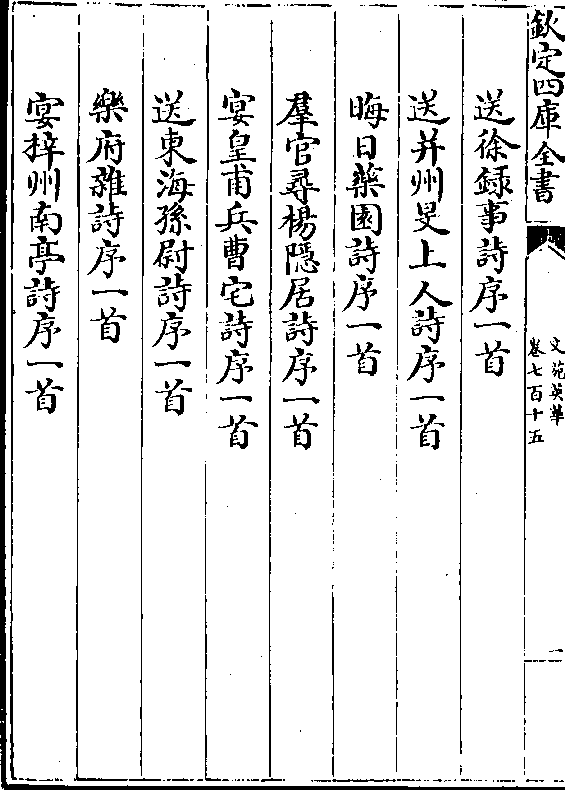 欽定四庫全書
文苑英華
卷七百十五
一
送徐録事詩序一首
送并州旻上人詩序一首
晦日藥園詩序一首
羣官尋楊隱居詩序一首
宴皇甫兵曹宅詩序一首
送東海孫尉詩序一首
樂府雜詩序一首
宴梓州南亭詩序一首